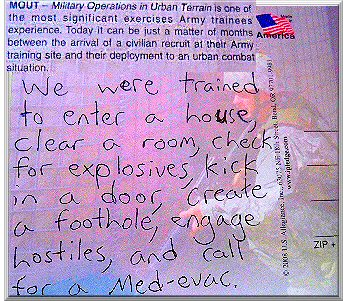 MOUT – Military Operations in Urban Terrain is one of
the most significant exercises Army trainees
experience. Today it can be just a matter of months
between the arrival of a civilian recruit at their Army
training site and their deployment to an urban combat
situation.
America
We were trained
to enter a house,
clear a room, check
for explosives, kick
in a door, create
a foothole, engage
hostiles, and call
for a Med-evac.
© 2008 U.S. Allegiance, Inc.
ZIP +